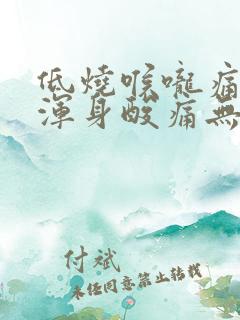 低燒喉嚨痛
渾身酸痛無
付斌
未经同意禁止转载